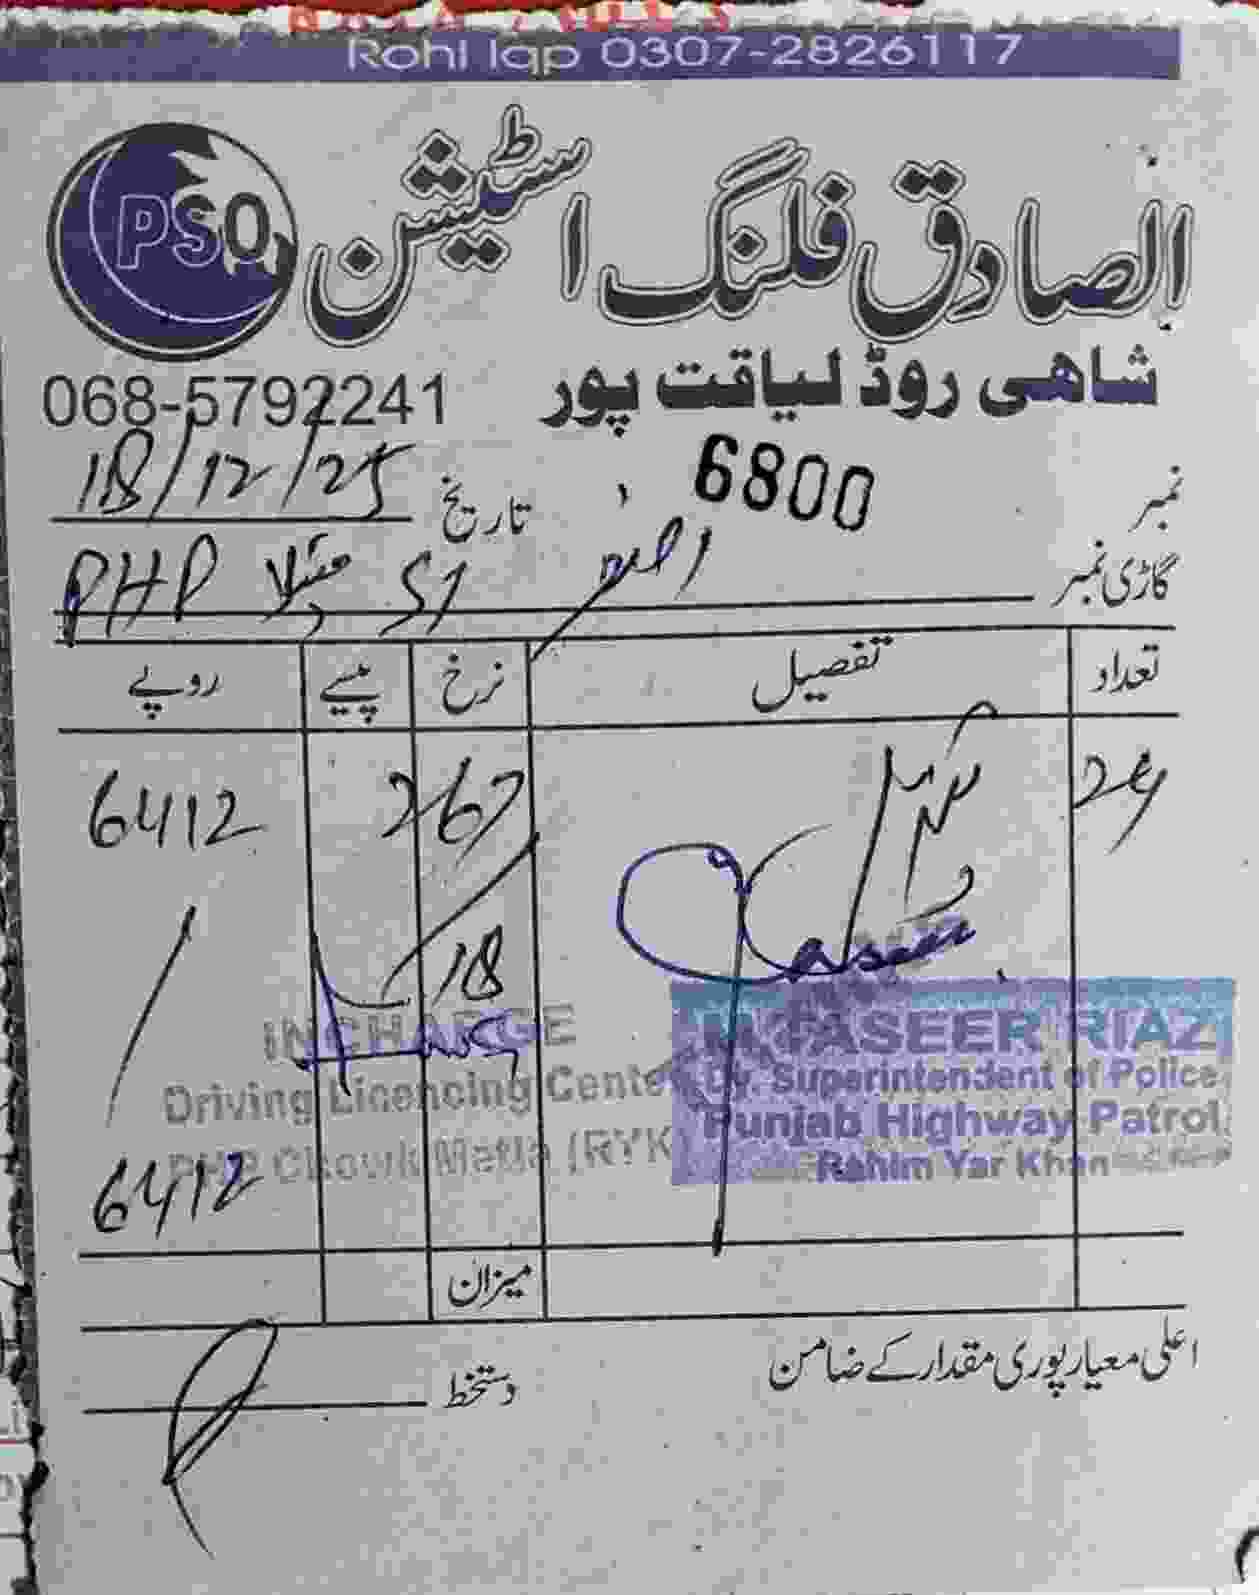 Rohi lqp 0307-2826117
PSO الصادق فلنگ اسٹیشن
شاھی روڈ لیاقت پور
068-5792241
نمبر 6800 تاریخ 18/12/25
گاڑی نمبر PHP
تعداد تفصیل نرخ پیسے روپے
24 267 6412
18
INCHARGE
Driving Licencing Center
PHP Chowk Matla (RYK)
M TASEER RIAZ
Dy. Superintendent of Police
Punjab Highway Patrol
Rahim Yar Khan
6412
میزان
اعلیٰ معیار پوری مقدار کے ضامن
دستخط